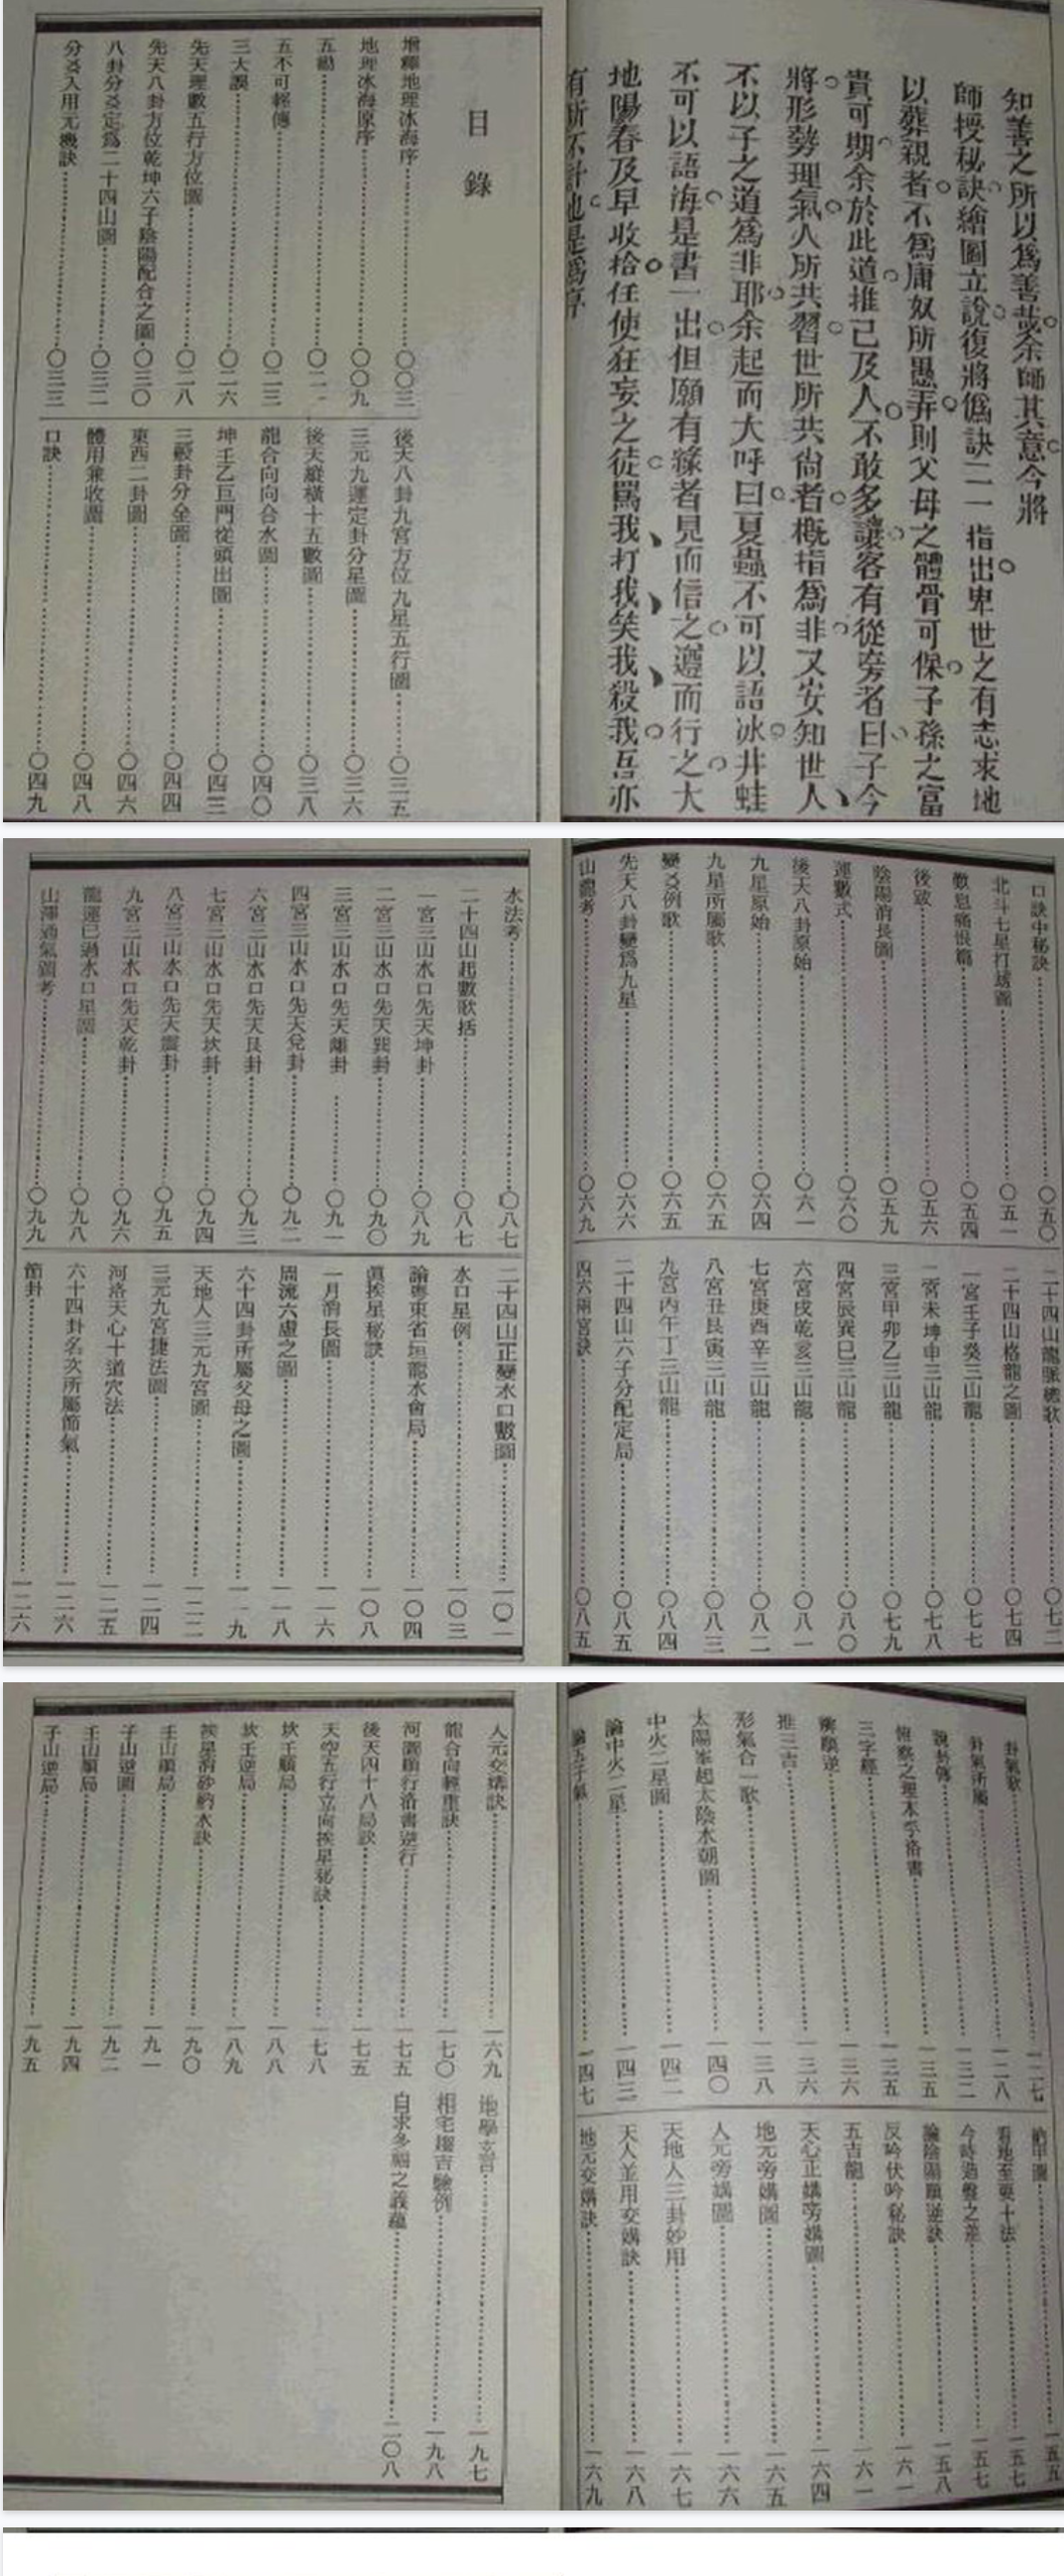 知善之所以為善哉余師其意今將
師授秘訣繪圖立說復將偽訣一一指出卑世之有志求地
以葬親者不為庸奴所愚弄則父母之體骨可保子孫之富
貴可期余於此道推己及人不敢多讓客有從旁者曰子今
將形勢理氣人所共習世所共尚者概指為非又安知世人
不以子之道為非耶余起而大呼曰夏蟲不可以語冰井蛙
不可以語海是書一出但願有緣者見而信之遵而行之大
地陽春及早收拾任使狂妄之徒罵我打我笑我殺我吾亦
有所不計也是為序
目錄
增釋地理冰海序〇〇三
地理冰海原序〇〇九
五勸〇二一
五不可輕傳〇二三
三大誤〇二六
先天理數五行方位圖〇二八
先天八卦方位乾坤六子陰陽配合之圖〇三〇
八卦分爻定為二十四山圖〇三二
分爻入用元機訣〇三三
後天八卦九宮方位九星五行圖〇三五
三元九運定卦分星圖〇三六
後天縱橫十五數圖〇三八
龍合向向合水圖〇四〇
坤壬乙巨門從頭出圖〇四三
三般卦分金圖〇四四
東西二卦圖〇四六
體用兼收圖〇四八
口訣〇四九
口訣中秘訣〇五〇
北斗七星打劫圖〇五一
歎息痛恨篇〇五四
後跋〇五六
陰陽消長圖〇五九
運數式〇六〇
後天八卦原始〇六一
九星原始〇六四
九星所屬歌〇六五
變爻例歌〇六五
先天八卦變為九星〇六六
山龍考〇六九
二十四山龍脈總歌〇七二
二十四山格龍之圖〇七四
一宮壬子癸三山龍〇七七
二宮未坤申三山龍〇七八
三宮甲卯乙三山龍〇七九
四宮辰巽巳三山龍〇八〇
六宮戌乾亥三山龍〇八一
七宮庚酉辛三山龍〇八二
八宮丑艮寅三山龍〇八三
九宮丙午丁三山龍〇八四
二十四山六子分配定局〇八五
四六兩宮訣〇八五
水法考〇八七
二十四山起數歌括〇八七
一宮三山水口先天坤卦〇八九
二宮三山水口先天巽卦〇九〇
三宮三山水口先天離卦〇九一
四宮三山水口先天兌卦〇九二
六宮三山水口先天艮卦〇九三
七宮三山水口先天坎卦〇九四
八宮三山水口先天震卦〇九五
九宮三山水口先天乾卦〇九六
龍運已過水口星圖〇九八
山澤通氣圖考〇九九
二十四山正變水口數圖一〇二
水口星例一〇三
論粵東省垣龍水會局一〇四
真挨星秘訣一〇八
一月消長圖一一六
周流六虛之圖一一八
六十四卦所屬父母之圖一一九
天地人三元九宮圖一二二
三元九宮捷法圖一二四
河洛天心十道穴法一二五
六十四卦名次所屬節氣一二六
節卦一二六
卦氣歌一二七
卦氣所屬一二八
說卦傳一三二
俯察之理本乎洛書一三五
三字經一三五
辨順逆一三六
推三吉一三六
形氣合一歌一三八
太陽峯起太陰水朝圖一四〇
中火二星圖一四二
論中火二星一四三
論五子氣一四七
納甲圖一五五
看地至要十法一五七
今時過盤之差一五七
論陰陽順逆訣一五八
反吟伏吟秘訣一六一
五吉龍一六一
天心正媾旁媾圖一六四
地元旁媾圖一六五
人元旁媾圖一六六
天地人三卦妙用一六七
天人並用交媾訣一六八
地元交媾訣一六九
人元交媾訣一六九
龍合向輕重訣一七〇
河圖順行洛書逆行一七五
後天四十八局訣一七五
天空五行立向挨星秘訣一七八
坎壬順局一八八
坎壬逆局一八九
挨星消砂納水訣一九〇
壬山順局一九一
子山逆圖一九二
壬山順局一九四
子山逆局一九五
地學玄旨一九七
相宅趨吉驗例一九八
自求多福之義蘊二〇八